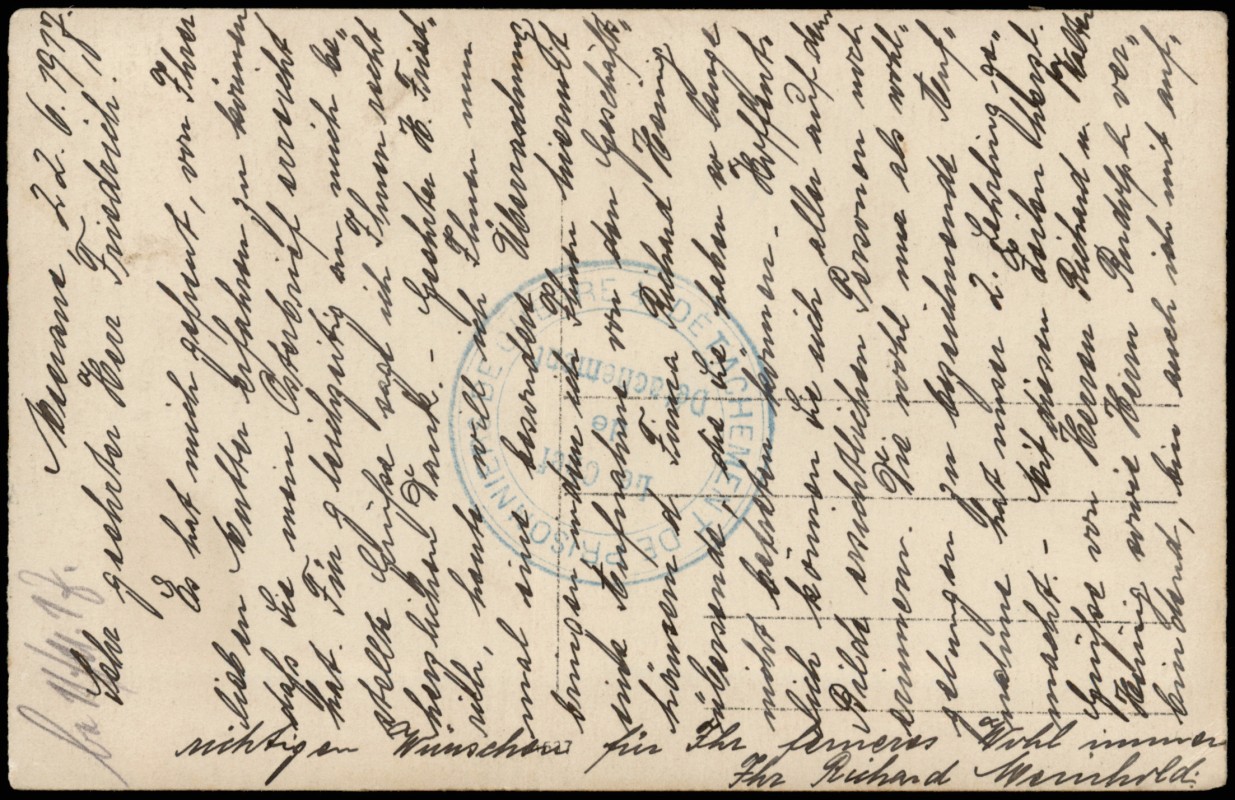 Meerane 22. 6. 1917.
Sehr geehrter Herr Friedrich!
Es hat mich gefreut, von Ihrer
lieben Mutter erfahren zu können
dass Sie mein Osterbrief erreicht
hat. Für gleichzeitig an mich be-
stellte Grüsse sage ich Ihnen recht
herzlichen Dank. - Geehrter H. Fried-
rich, heute will ich Ihnen nun
mal eine besondere Überraschung
bringen, indem ich Ihnen hiermit
eine Aufnahme von dem Geschäfts-
häusern d. Firma Richard
übersende, die Sie haben so lange
nicht besehen können. - Hoffent-
lich können Sie sich aller auf dem
Bilde ersichtlichen Personen noch
erinnern. Die wohl uns als wohl-
gelungen zu bezeichnende Auf-
nahme hat unser 2. Lehrling ge-
macht. - Mit diesen Zeilen herzl.
Grüsse von Herren Richard u. Walter
sowie Herrn Rudolph ver-
bindend, bin auch ich mit auf-
richtigen Wünschen für Ihr ferneres Wohl immer
Ihr Richard Meinhold.
DÉTACHEMENT DE PRISONNIERS DE GUERRE
Le Chef
de
Détachement